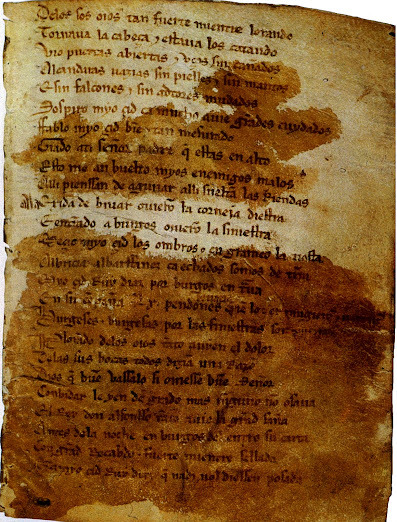 Delos sos oios tan fuerte mientre lorando
Tornaua la cabeça & estaua los catando
Vio puertas abiertas & vços sin cañados
Alcandaras uazias sin pielles & sin mantos
E sin falcones & sin adtores mudados
Sospiro myo çid ca mucho auie grãdes cuydados
Fablo myo çid bien & tan mesurado
Grado ati señor padre q̃ estas en alto
Esto me an buelto myos enemigos malos
Alli pienssan de aguiiar alli sueltã las Riendas
Ala exida de biuar ouierõ la corneia diestra
E entrãdo a burgos ouierõ la siniestra
Meçio myo çid los ombros & en grameo la tiesta
Albricia albarffanez ca echados somos de tr̃ra
Myo çid Ruy diaz por burgos en tr̃ua
En su compaña .Lx. pendones
Burgeses & burgesas por las finiestras son
Plorãdo delos oios tãto auyen el dolor
Delas sus bocas todos dizian una Razõ
Dios q̃ buẽ vassalo si ouiesse buẽ Señor
Conbidar le yen de grado mas ninguno nõ osaua
El Rey don alfonsso tãto auie la grãd saña
Antes dela noche en burgos del entro su carta
Con grãd Recabdo & fuerte mientre sellada
Que a myo çid Ruy diaz q̃ nadi nol diessen posada